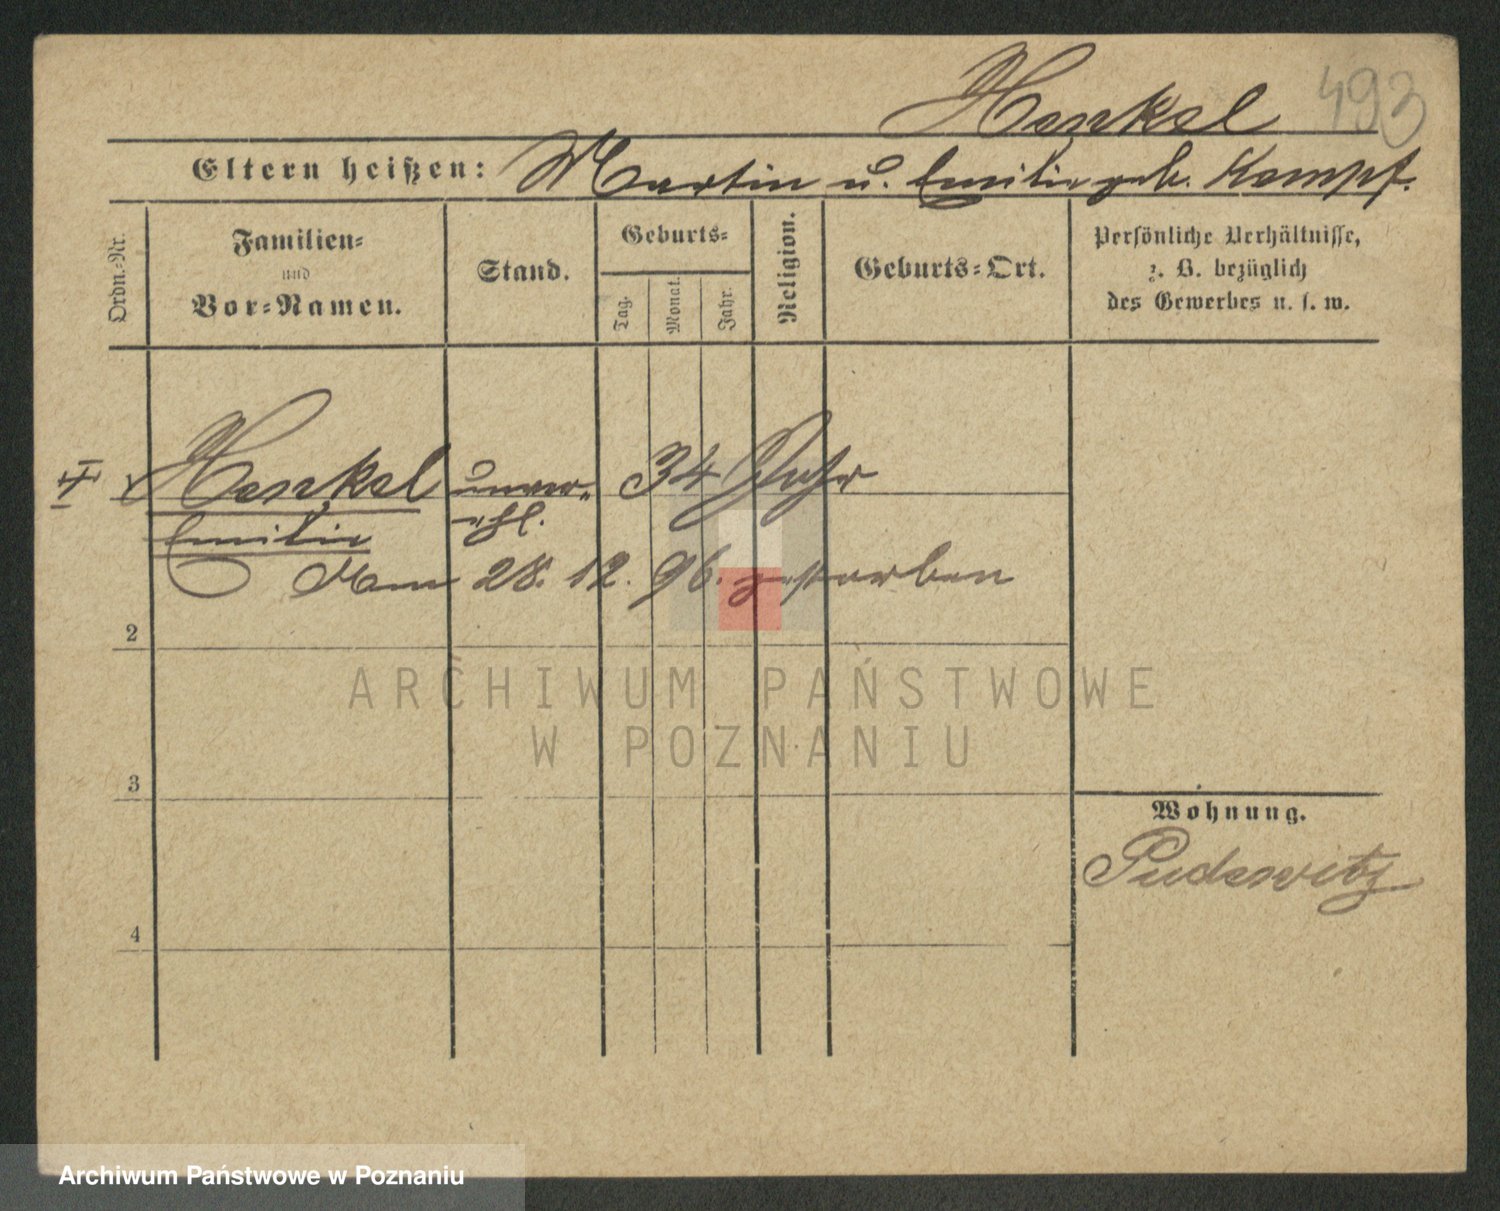 Henkel 493
Eltern heißen: Martin u. Emilie geb. Kempf.
Ordn.-Nr.
Familien-
und
Vor-Namen.
Stand.
Geburts-
Tag.
Monat.
Jahr.
Religion.
Geburts-Ort.
Persönliche Verhältnisse,
z. B. bezüglich
des Gewerbes u. s. w.
Henkel unver- 34 Jahr
Emilie ehl.
Am 28. 12. 96. gestorben
2
ARCHIWUM PAŃSTWOWE
W POZNANIU
3
Wohnung.
Pudewitz
4
Archiwum Państwowe w Poznaniu